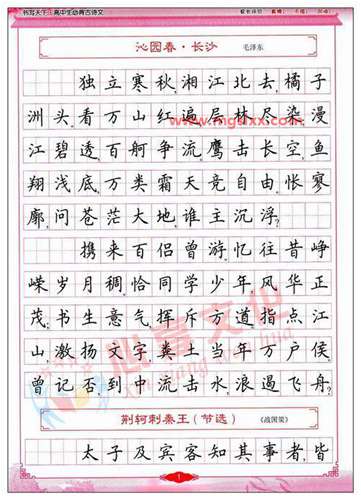 书写天下·高中生必背古诗文
沁园春·长沙 毛泽东
独立寒秋,湘江北去,橘子
洲头。看万山红遍,层林尽染;漫
江碧透,百舸争流。鹰击长空,鱼
翔浅底,万类霜天竞自由。怅寥
廓,问苍茫大地,谁主沉浮?
携来百侣曾游,忆往昔峥
嵘岁月稠。恰同学少年,风华正
茂;书生意气,挥斥方遒。指点江
山,激扬文字,粪土当年万户侯。
曾记否,到中流击水,浪遏飞舟?
荆轲刺秦王(节选) 《战国策》
太子及宾客知其事者,皆
1
心意文化